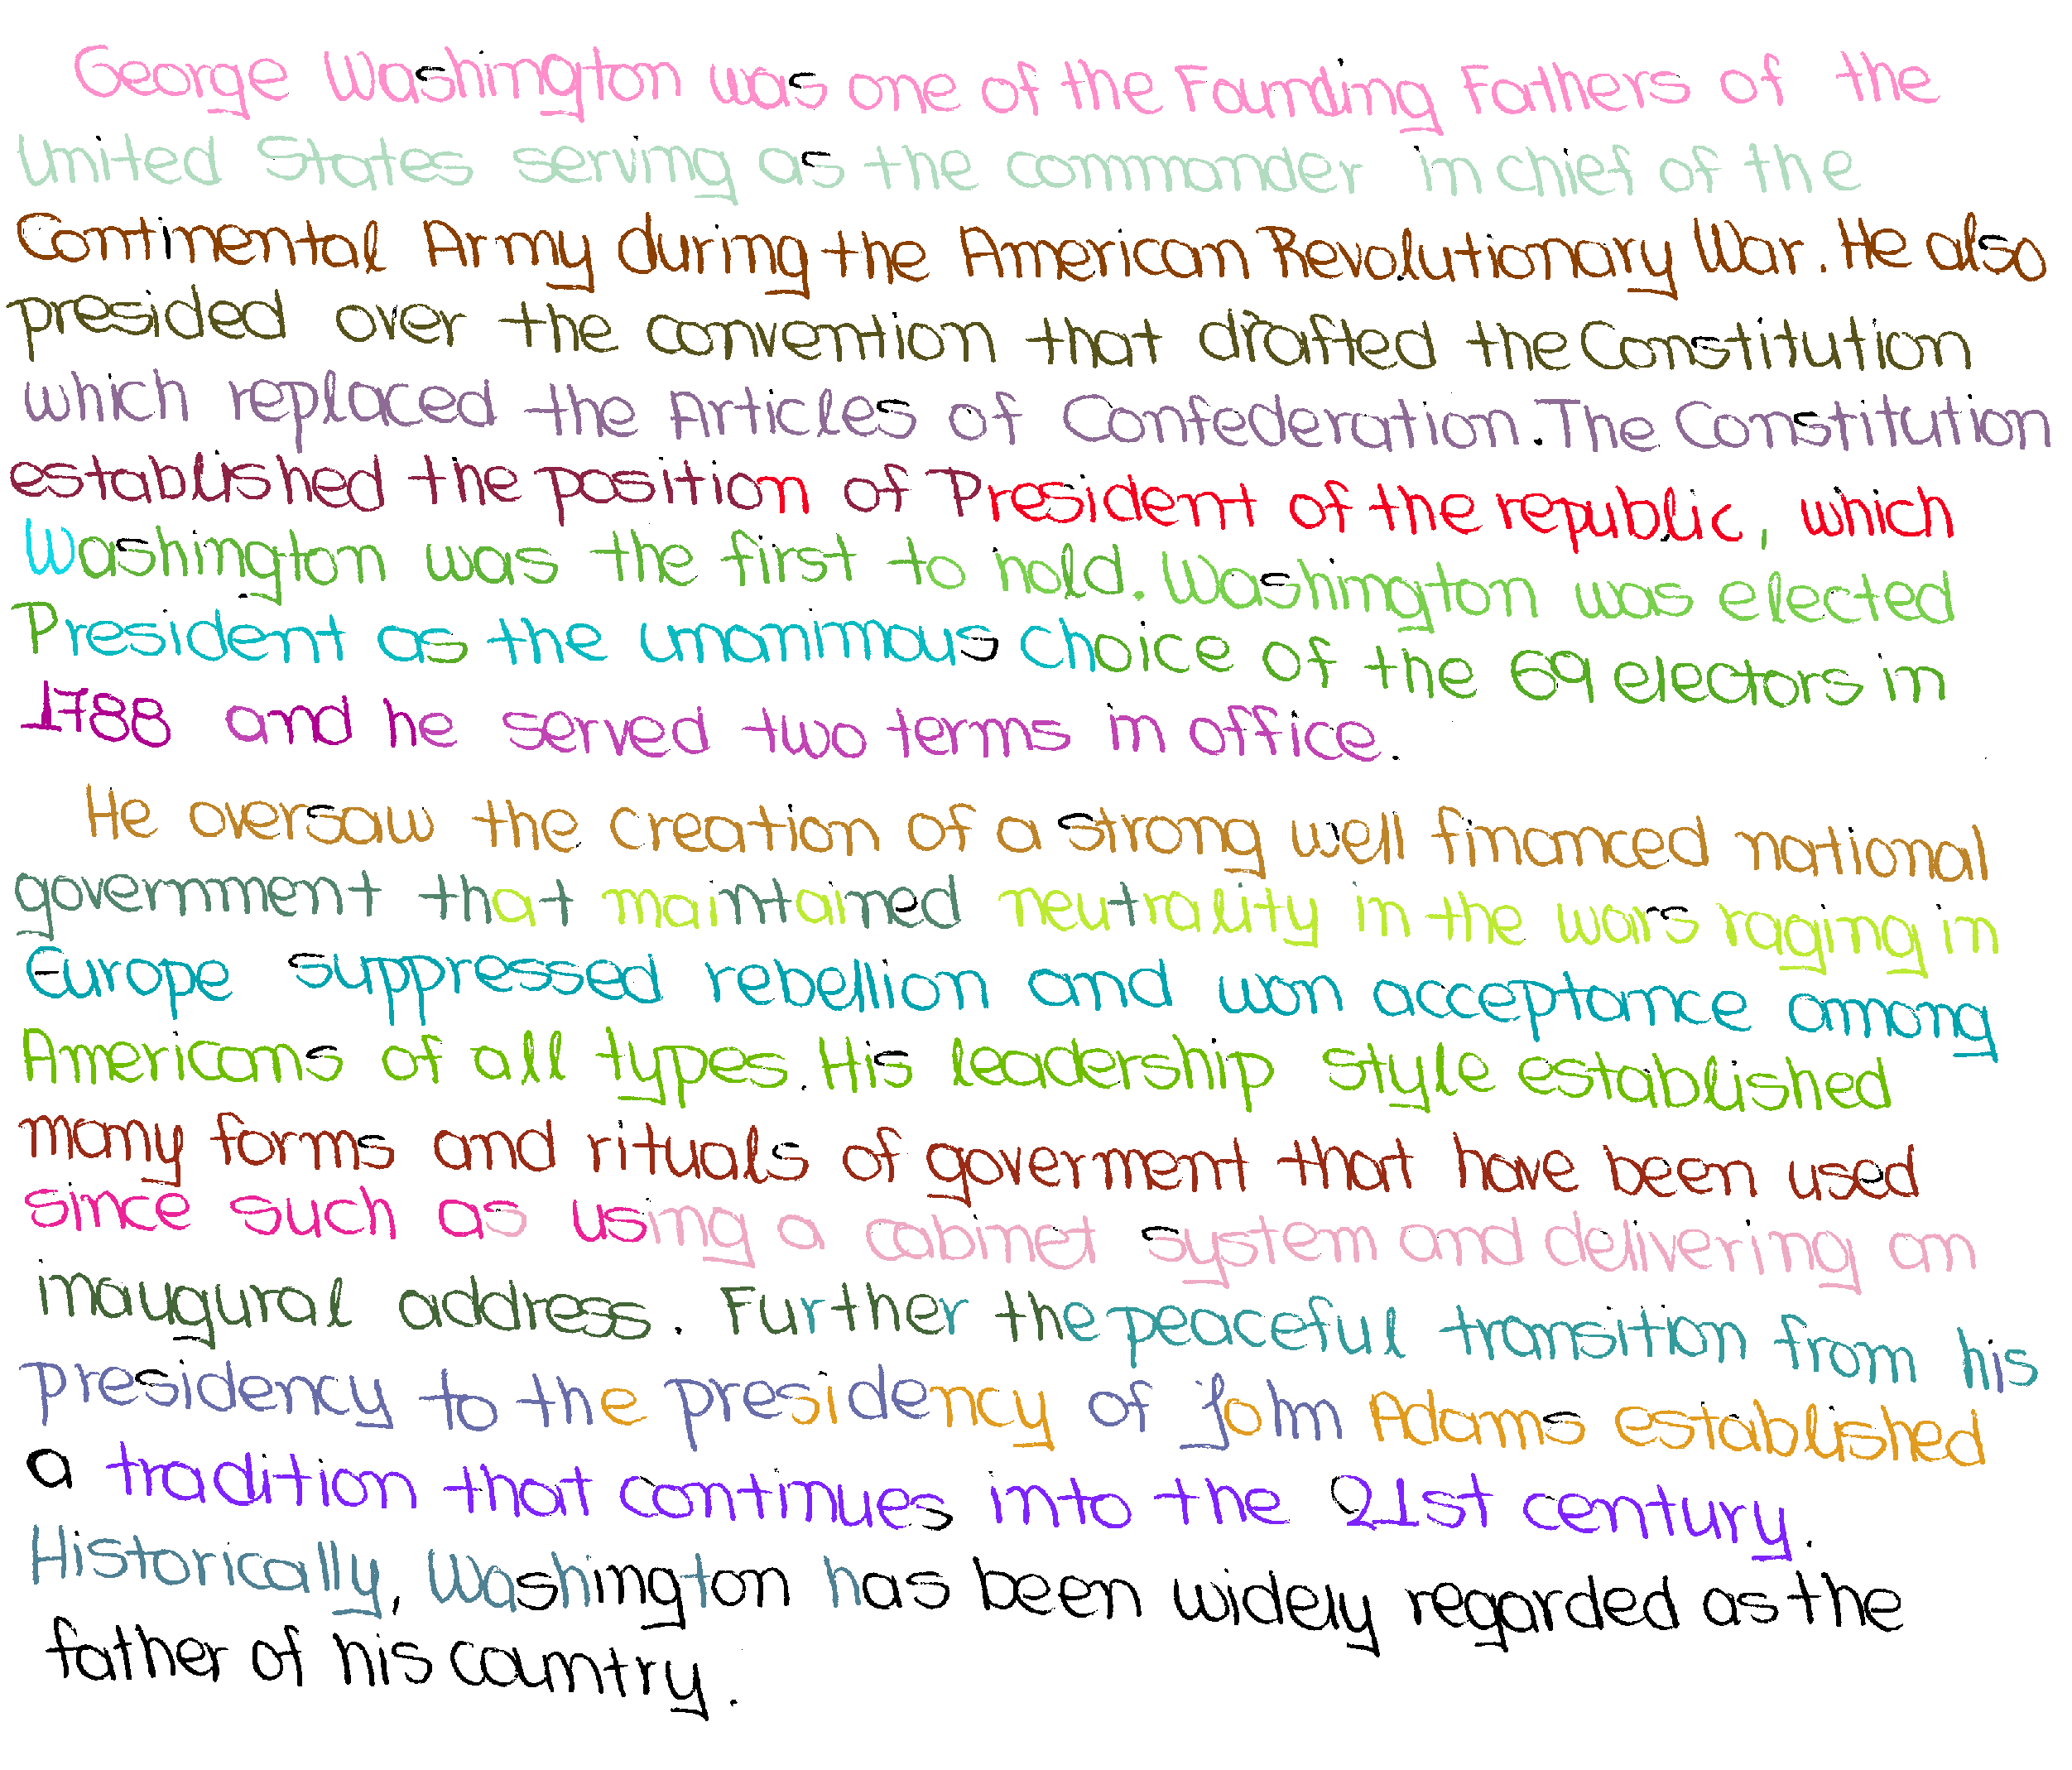 George Washington was one of the Founding Fathers of the
United States serving as the commander in chief of the
Continental Army during the American Revolutionary War. He also
presided over the convention that drafted the Constitution
which replaced the Articles of Confederation. The Constitution
established the position of President of the republic, which
Washington was the first to hold. Washington was elected
President as the unanimous choice of the 69 electors in
1788 and he served two terms in office.
He oversaw the creation of a strong well financed national
government that maintained neutrality in the wars raging in
Europe suppressed rebellion and won acceptance among
Americans of all types. His leadership style established
many forms and rituals of goverment that have been used
since such as using a cabinet system and delivering an
inaugural address. Further the peaceful transition from his
presidency to the presidency of John Adams established
a tradition that continues into the 21st century.
Historically, Washington has been widely regarded as the
father of his country.